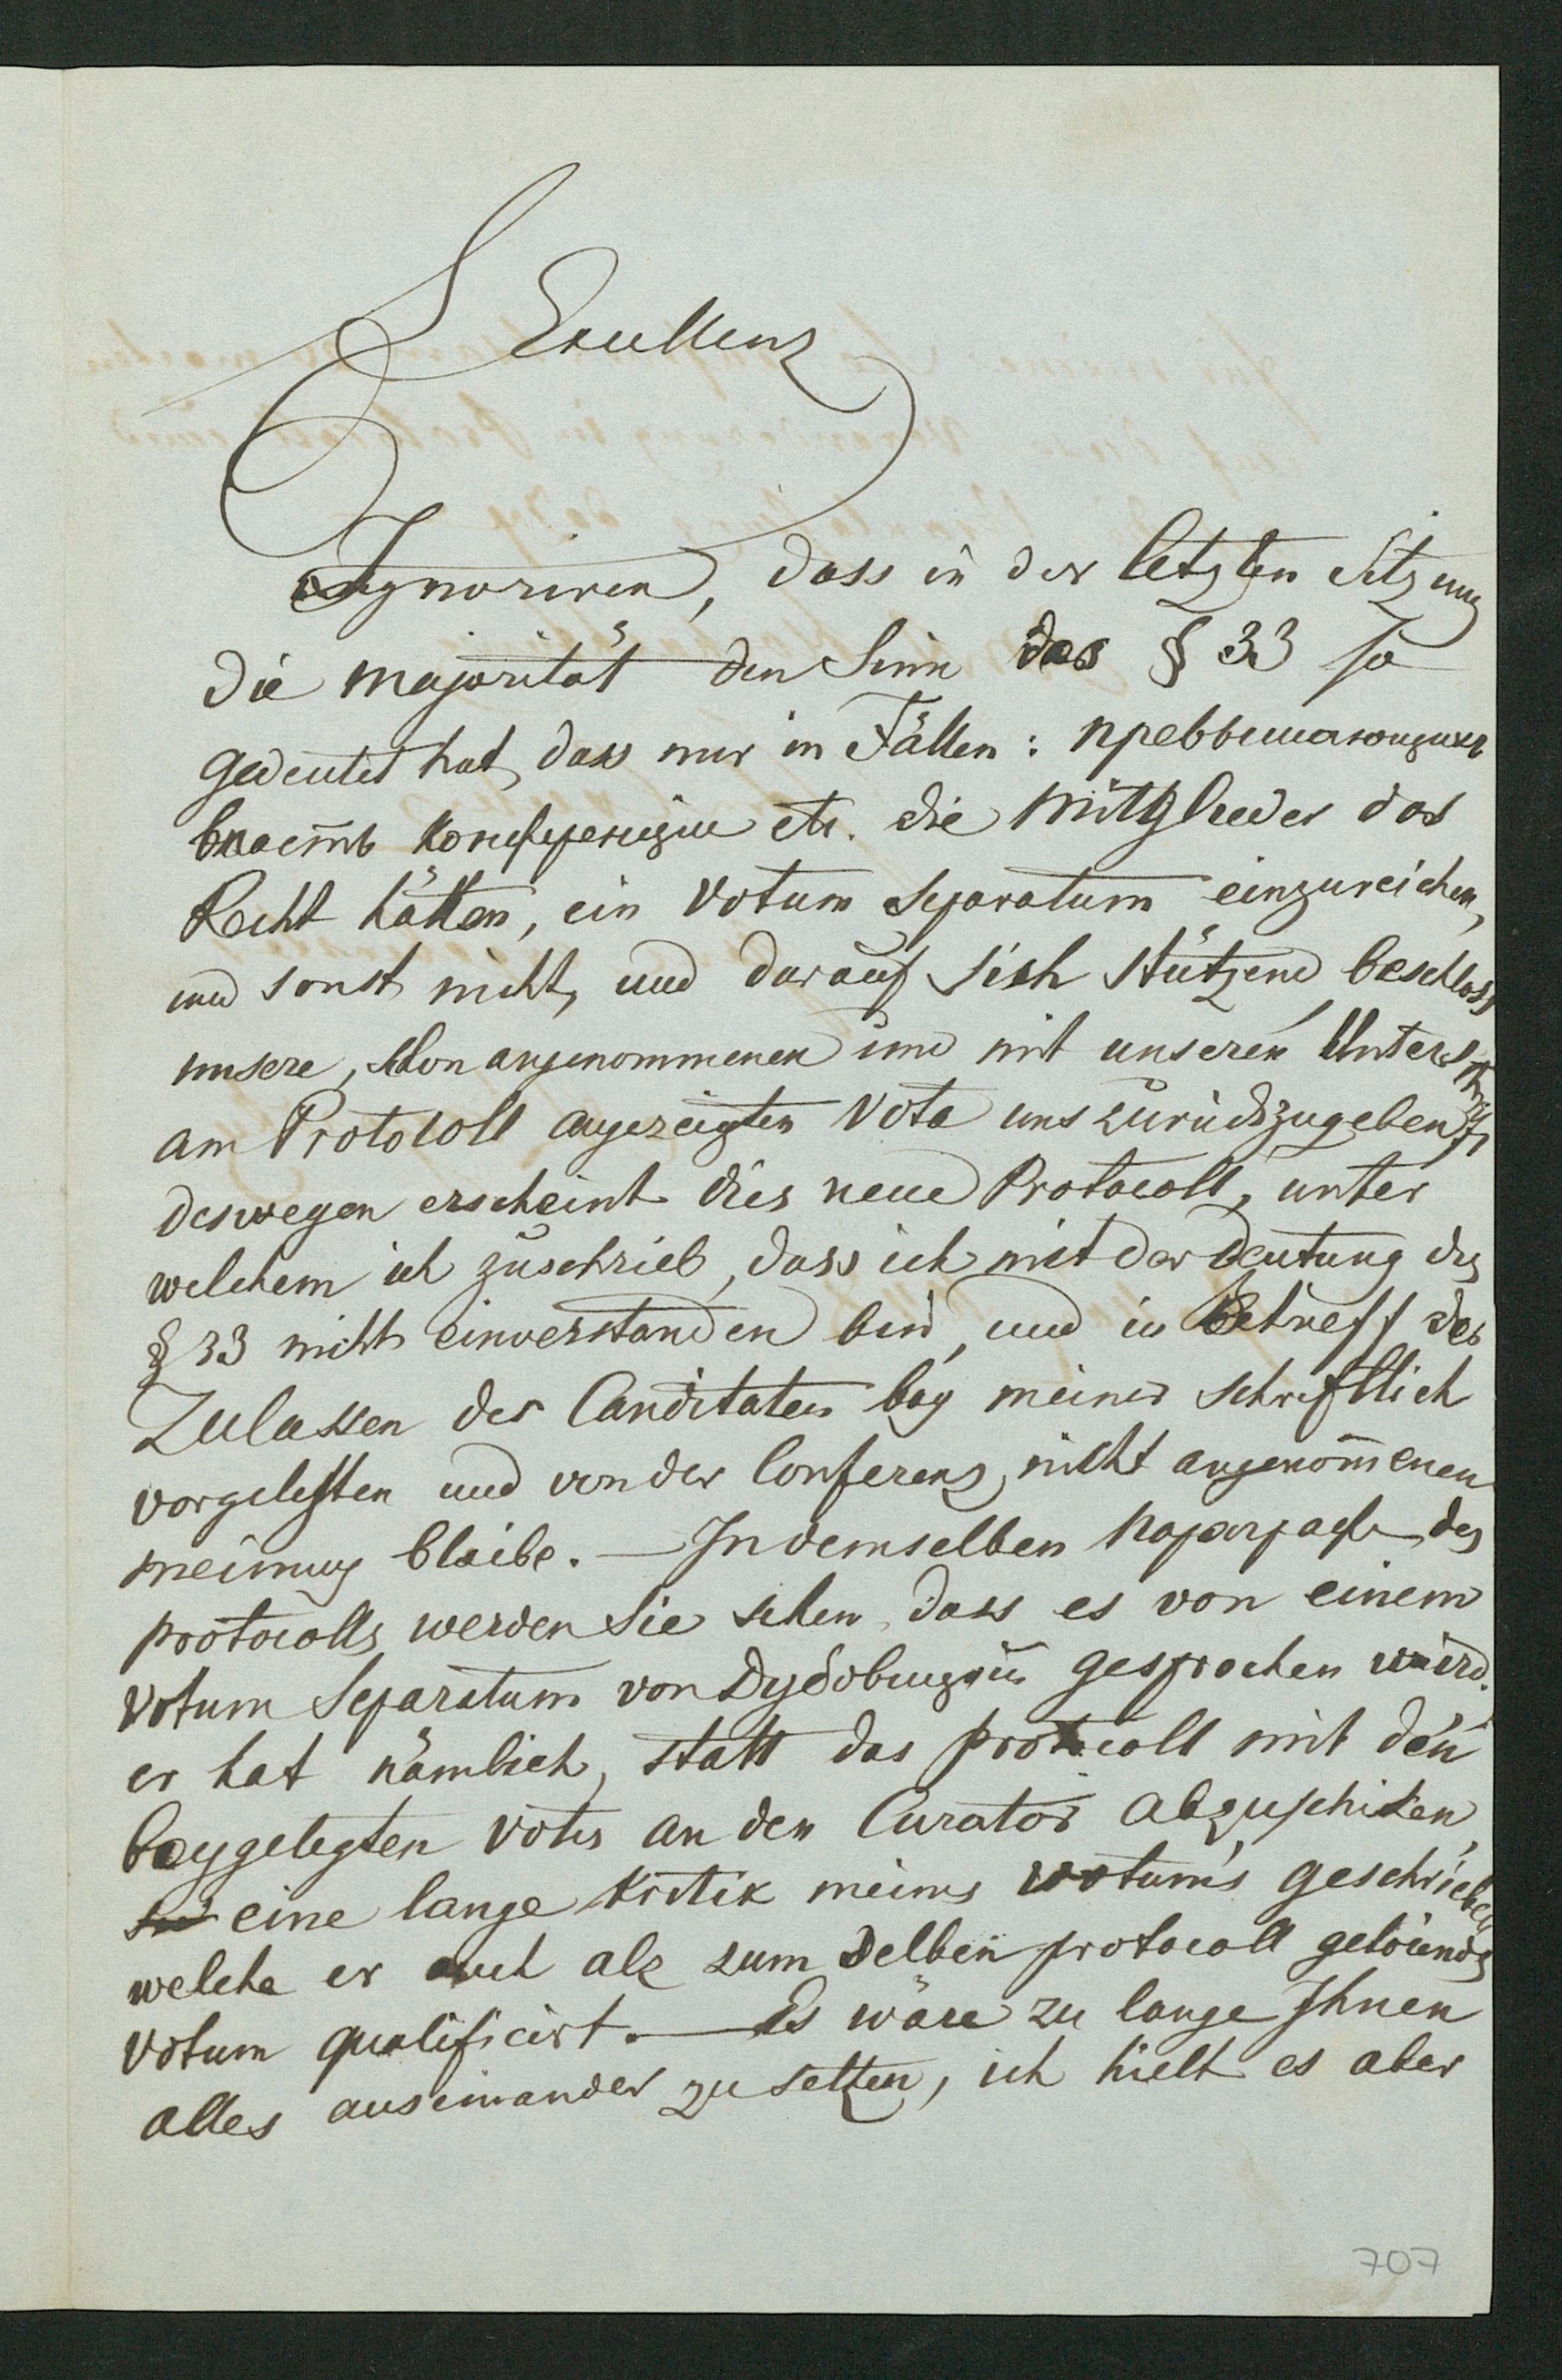 Excellenz
Ignoriren, dass in der letzten Sitzung
die majorität den Sinn des § 33 so
gedeutet hat, dass nur in Fällen: превышающихъ
власть конференции etc. die Mitglieder das
Recht hätten, ein Votum Separatum einzureichen,
und sonst nicht, und darauf sich stützend beschloss
unsere, schon angenommenen und mit unseren Unterschrift
am Protocoll angezeigten Vota uns zurückzugeben,
deswegen erscheint dies neue Protocoll, unter
welchem ich zuschrieb, dass ich mit der Deutung des
§ 33 nicht einverstanden bin, und in Betreff des
Zulassen der Canditaten bey meiner schriftlich
vorgelesten und von der Conferenz nicht angenom̄enen
meinung bleibe. — In demselben Параграфе des
protocolls werden Sie sehen, dass es von einem
Votum Separatum von gesprochen wird.
er hat nämlich, statt das protocoll mit den
beygelegten Votis an den Curator abzuschicken,
eine lange Kritik meines votum's geschrieben
welche er auch als zum selben protocoll
Votum qualificirt. — Es wäre zu lange Ihnen
alles auseinander zu setzen, ich hielt es aber
707